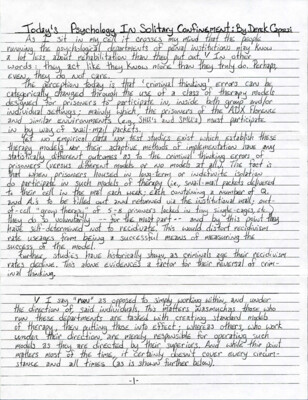 Today's Psychology In Solitary Confinement: By Derek Capozzi
As I sit in my cell it crosses my mind that the people
running the psychological departments of penal institutions may know
a lot less about rehabilitation than they put out. V In other
words; they act like they know more than they truly do. Perhaps
even, they do not care.
The perception today is that "criminal thinking" errors can be
categorically changed through the use of a class of therapy models
designed for prisoners to participate in, inside both group and/or
individual settings; mainly which, the prisoners of the ADX Florence
and similar environments (e.g., SHU's and SMUs) must participate
in by way of snail-mail packets.
Yet no empirical data nor test studies exist which establish these
therapy models nor their adaptive methods of implementation have any
statistically different outcomes as to the criminal thinking errors of
prisoners (versus different models or no models at all). The fact is
that when prisoners housed in long-term or indefinite isolation
do participate in such models of therapy (i.e., snail-mail packets delivered
to their cell in the mail each week with containing a number of Q.
and A.s to be filled out and returned via the institutional mail; out-
of-cell "group therapy" of 5-8 prisoners locked in tiny single-cages; etc.)
they do so voluntarily -- for the most part -- and by this point they
have self-determined not to recidivate. This would distort recidivism
rate useages from being a successful means of measuring the
success of the model.
Further, studies have historically shown, as criminals age their recidivism
rates decline. This alone evidences a factor for their reversal of crim-
inal thinking.
V I say "run" as opposed to simply working within, and under
the direction of, said individuals. This matters inasmuch as those who
run these departments are tasked with creating standard models
of therapy, then putting those into effect; whereas others, who work
under their direction, are merely responsible for operating such
models as they are directed by their superiors. And while this point
matters most of the time, it certainly doesn't cover every circum-
stance and all times (as is shown further below).
-1-